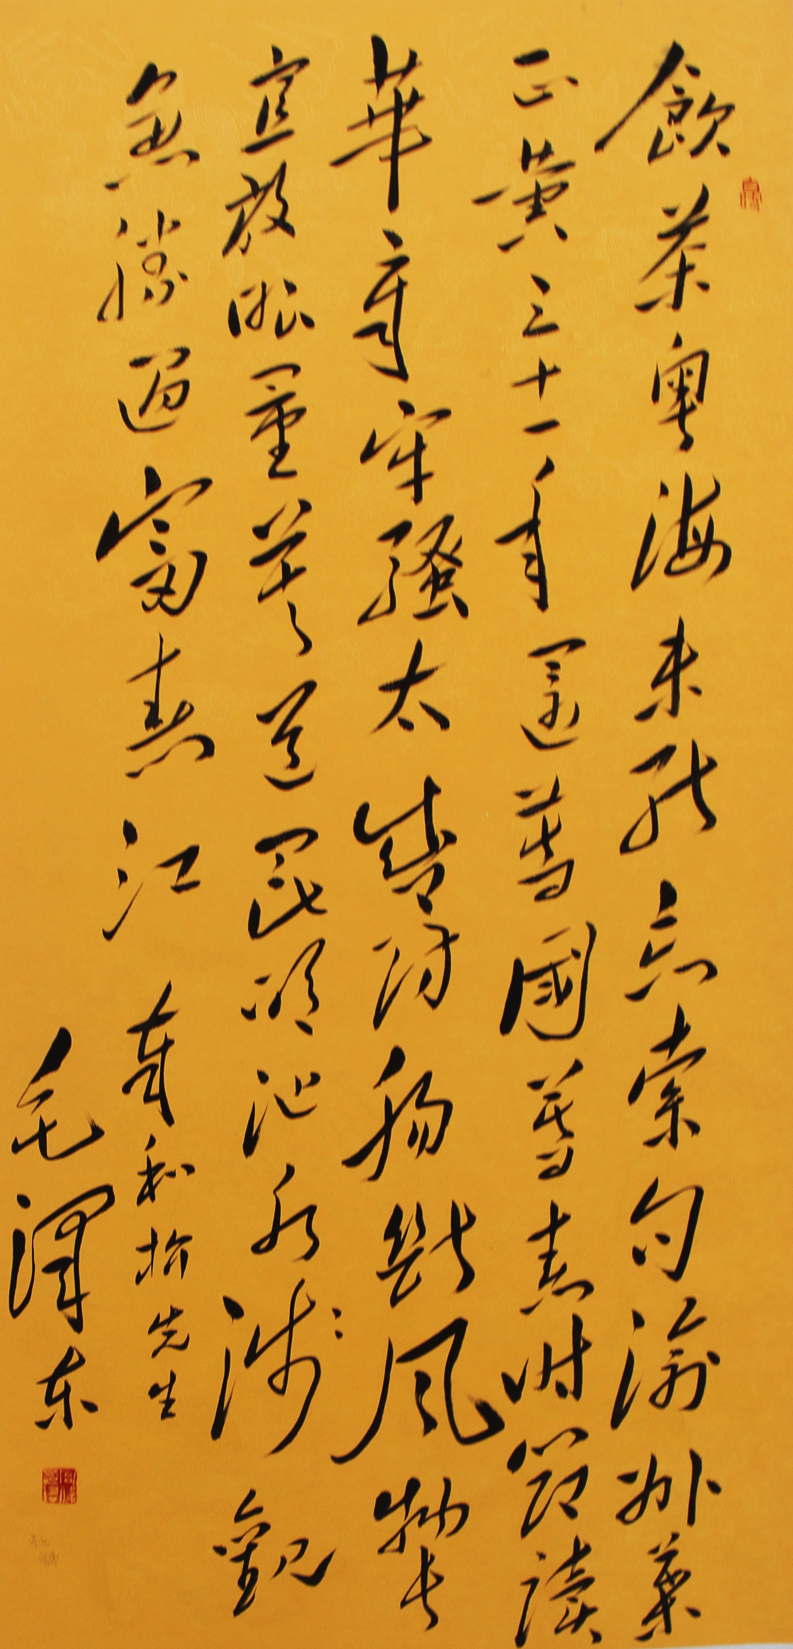 飲茶粤海未能忘索句渝州葉
正黄三十一年還舊國暮春时節讀
華章牢騷太盛防腸斷風物長
宜放眼量莫道昆明池水淺觀
魚勝過富春江 奉和柳先生
毛澤东